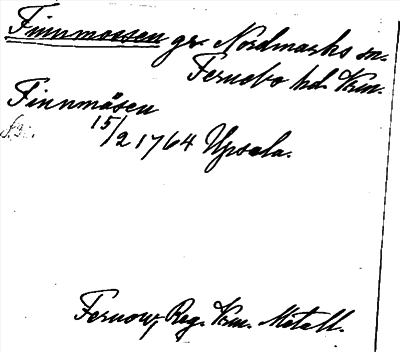 Finnmossen gr. Nordmarks sn.
Fernebo hd. Vrm.
Finnmåsen
15/2 1764 Upsala.
Fernow, Reg. Vrm. Metall.